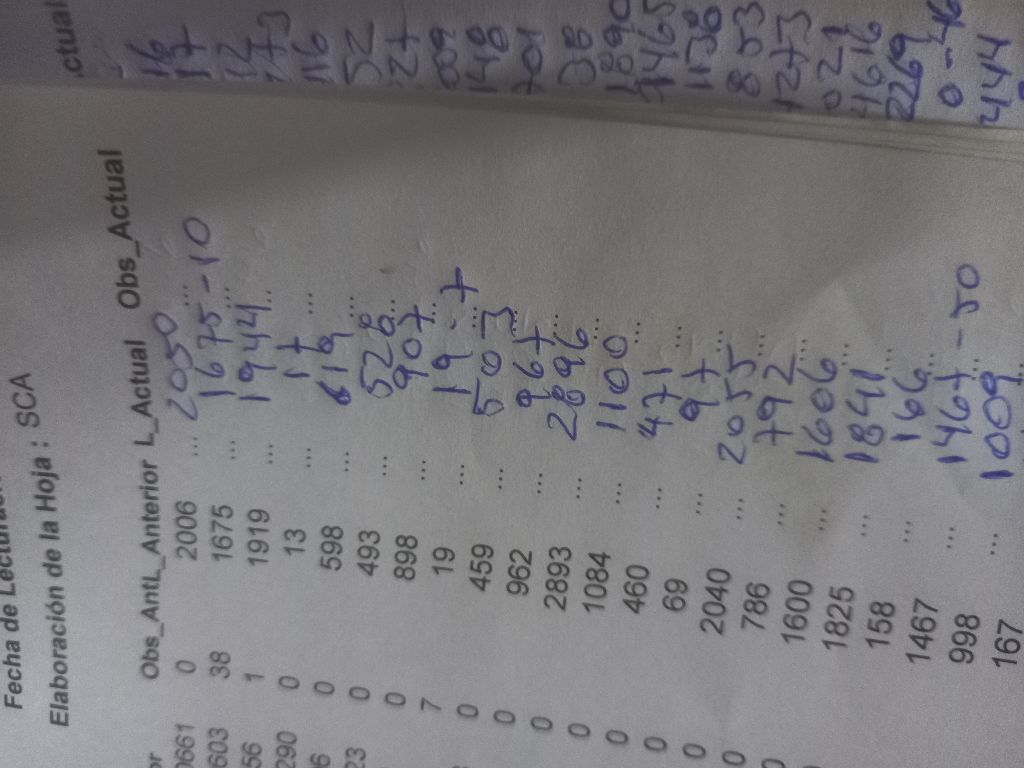 Fecha de
Elaboración de la Hoja : SCA
Obs_Ant L_Anterior L_Actual Obs_Actual
0661 0 2006 ... 2050 ...
603 38 1675 ... 1675 ... -10
56 1 1919 ... 1944 ...
290 0 13 ... 17 ...
6 0 598 ... 619 ...
23 0 493 ... 528 ...
0 898 ... 907 ...
7 19 ... 19 ... 7
0 459 ... 503 ...
0 962 ... 967 ...
0 2893 ... 2896 ...
0 1084 ... 1100 ...
0 460 ... 471 ...
0 69 ... 97 ...
0 2040 ... 2055 ...
0 786 ... 792 ...
0 1600 ... 1606 ...
1825 ... 1841 ...
158 ... 166 ...
1467 ... 1467 ... -50
998 ... 1009 ...
167
ctual
16
17
12
273
116
52
27
009
148
701
38
1138
853
1273
021
4616
2269
0-46
444